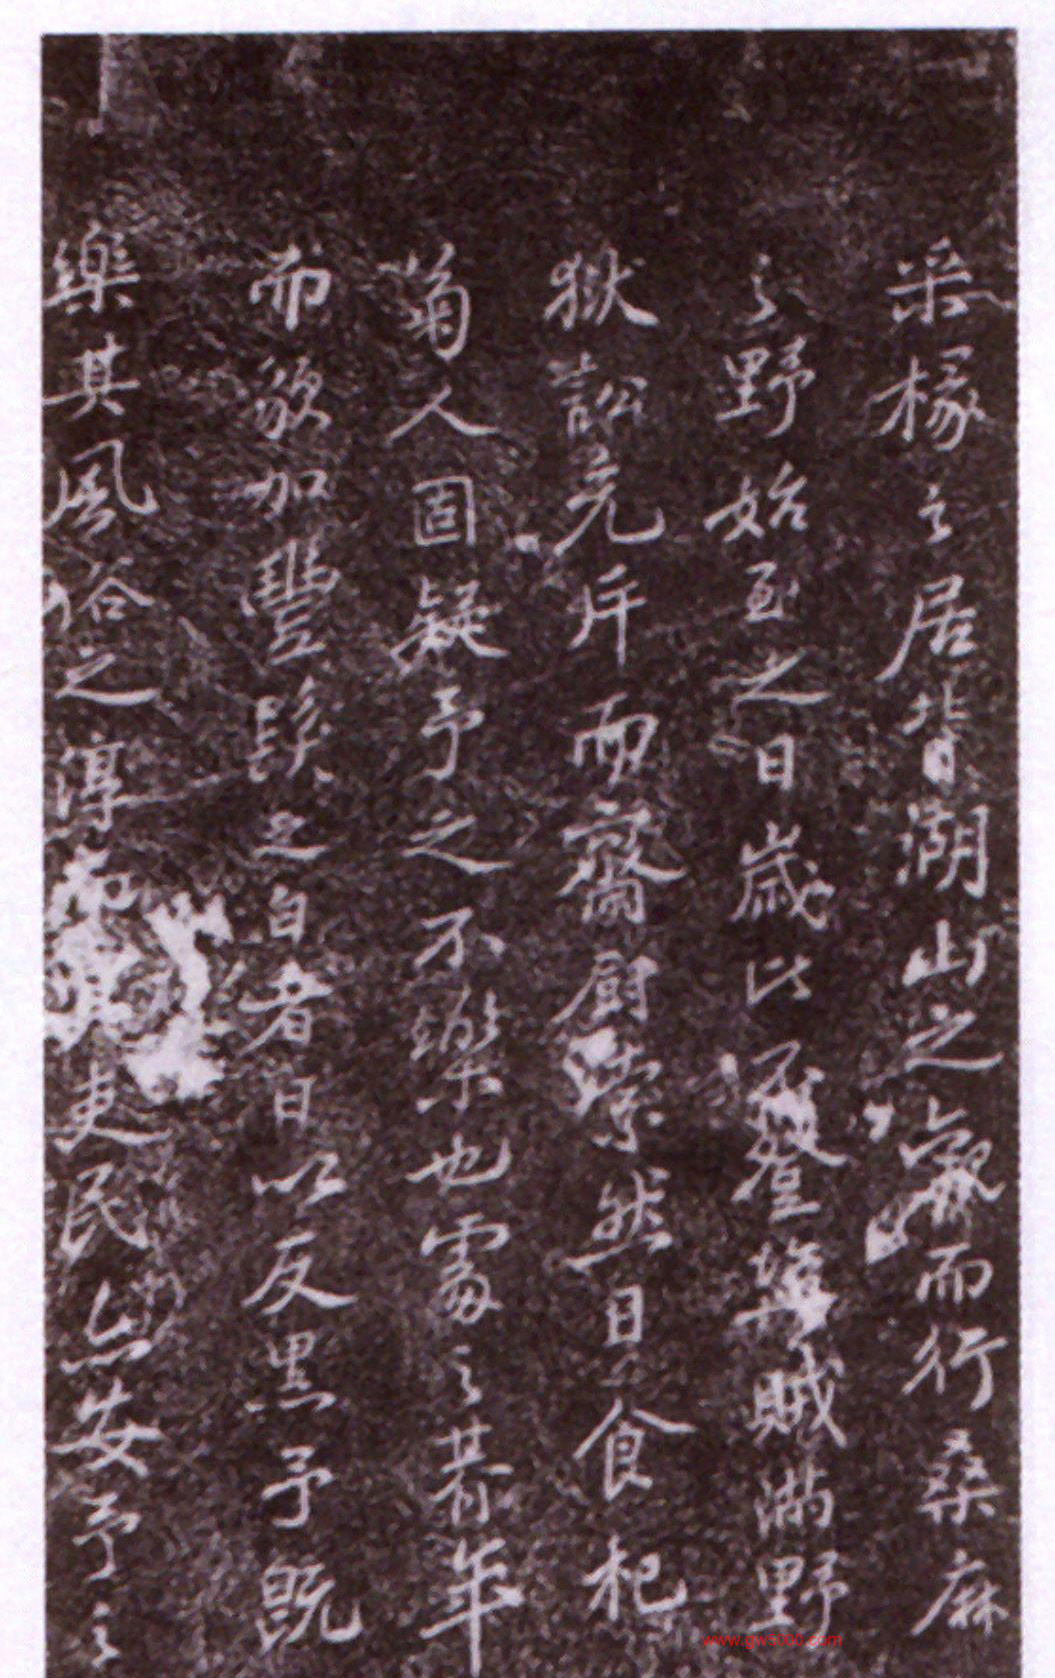 采椽之居背湖山之觀而行桑麻
之野始至之日歲比不登盜賊滿野
獄訟充斥而齋厨索然日食杞
菊人固疑予之不樂也處之朞年
而貌加豐髮之白者日以反黑予既
樂其風俗之淳而其吏民亦安予之
www.gw3000.com